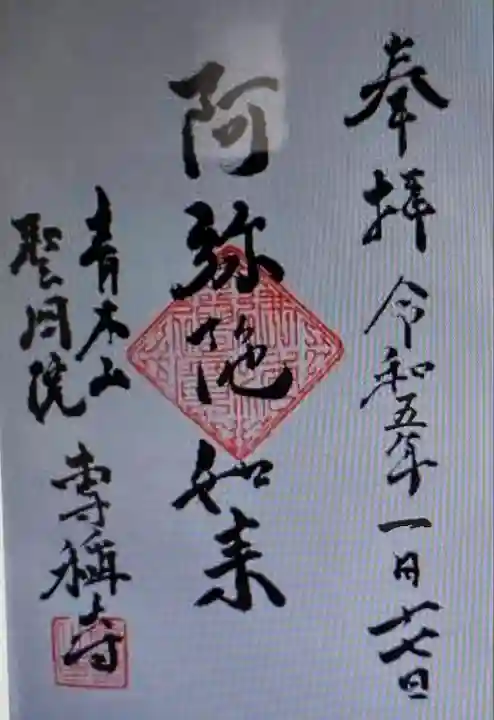 奉拝 令和五年一月十七日
阿弥陀如来
青木山
聖周院
専稱寺